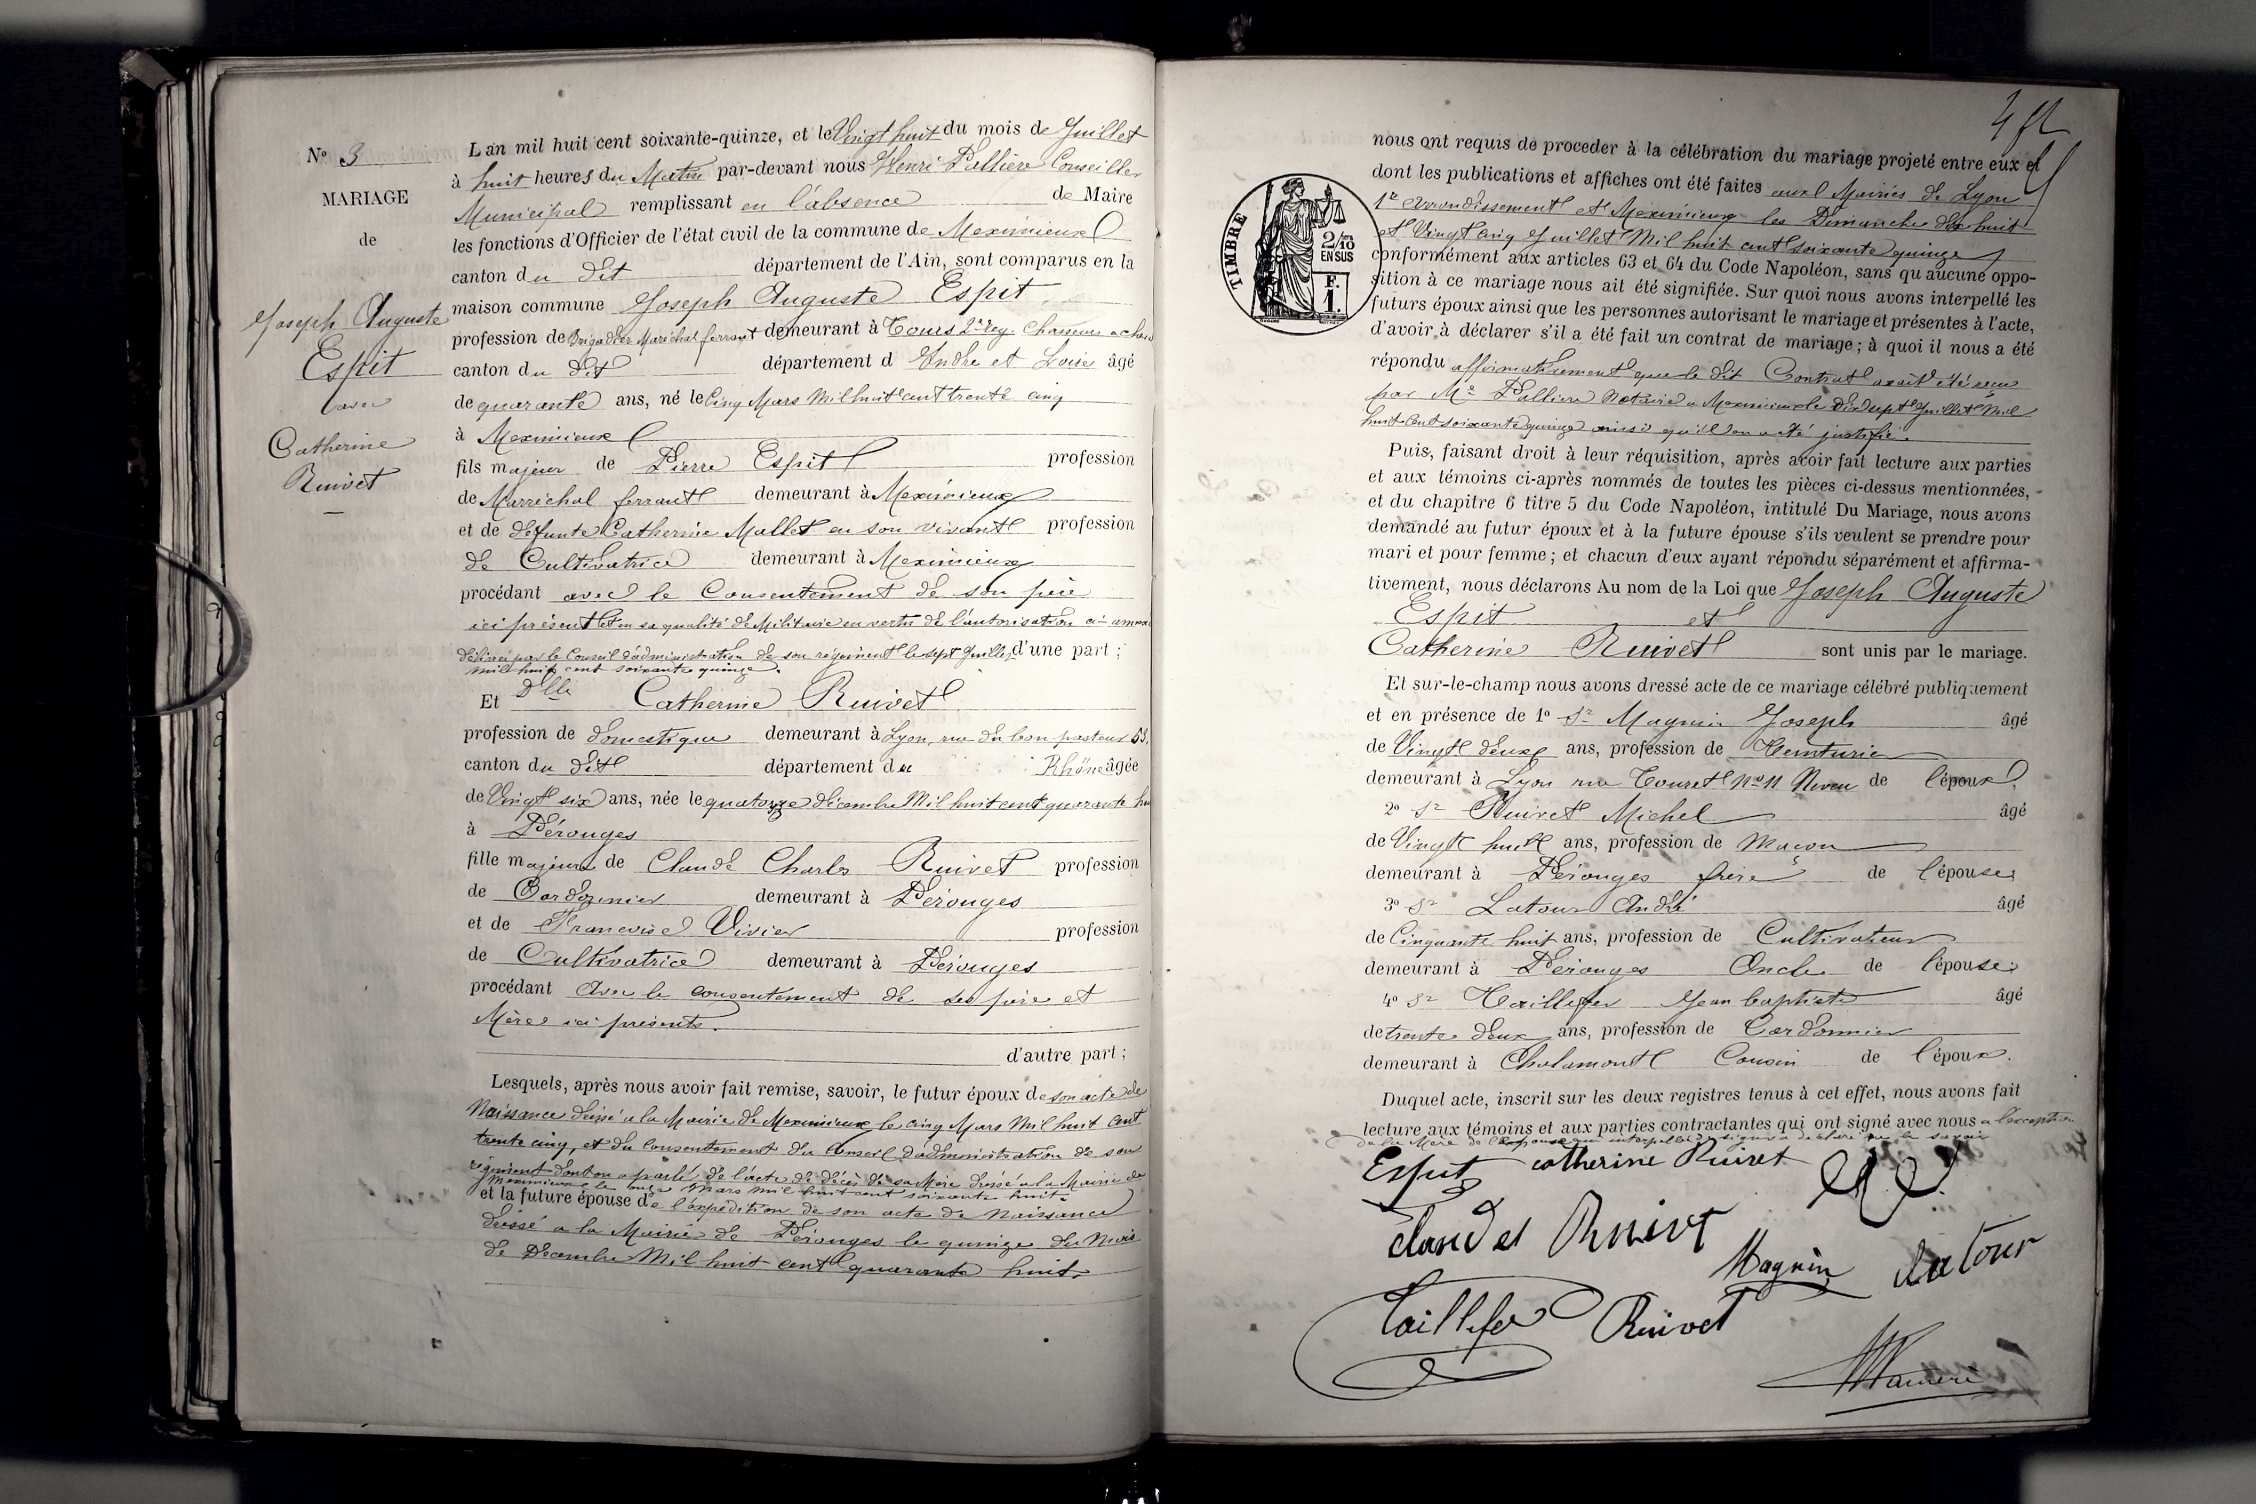 N° 3
MARIAGE
de
Joseph Auguste
Espit
avec
Catherine
Ruivet
L'an mil huit cent soixante-quinze, et le Vingt huit du mois de Juillet
à huit heures du Matin par-devant nous Henri Pallière Conseiller
Municipal remplissant en l'absence de Maire
les fonctions d'Officier de l'état civil de la commune de Meximieux
canton du dit département de l'Ain, sont comparus en la
maison commune Joseph Auguste Espit
profession de Brigadier Maréchal ferrant demeurant à Tours 2e reg. Chasseurs a chev
canton du dit département d Indre et Loire âgé
de quarante ans, né le Cinq Mars Mil huit cent trente cinq
à Meximieux
fils majeur de Pierre Espit profession
de Marréchal ferrant demeurant à Meximieux
et de défunte Catherine Mallet en son vivant profession
de Cultivatrice demeurant à Meximieux
procédant avec le Consentement de son père
ici présent et en sa qualité de Militaire en vertu de l'autorisation ci-annex
délivrée par le Conseil d'administration de son régiment le sept Juillet d'une part ;
mil huit cent soixante quinze.
Et Dlle Catherine Ruivet
profession de domestique demeurant à Lyon, rue du bon pasteur 53,
canton du dit département du Rhône âgée
de Vingt six ans, née le quatorze décembre Mil huit cent quarante hu
à Pérouges
fille majeure de Claude Charles Ruivet profession
de Cordonnier demeurant à Pérouges
et de Francoise Vivier profession
de Cultivatrice demeurant à Pérouges
procédant avec le consentement de ses père et
Mère ici présents.
d'autre part ;
Lesquels, après nous avoir fait remise, savoir, le futur époux de son acte de
Naissance dressé a la Mairie de Meximieux le cinq Mars Mil huit cent
trente cinq, et du Consentement du Conseil d'administration de son
régiment dont on a parlé, de l'acte de décès de sa Mère dressé a la Mairie de
Meximieux le onze Mars mil huit cent soixante huit
et la future épouse de l'expédition de son acte de Naissance
dressé a la Mairie de Pérouges le quinze du Mois
de Décembre Mil huit cent quarante huit.
TIMBRE
2/10
EN SUS
F.
1.
nous ont requis de proceder à la célébration du mariage projeté entre eux et
dont les publications et affiches ont été faites aux Mairies de Lyon
1er Arrondissement et Meximieux les Dimanche dix huit
et Vingt cinq Juillet Mil huit cent soixante quinze
conformément aux articles 63 et 64 du Code Napoléon, sans qu'aucune oppo-
sition à ce mariage nous ait été signifiée. Sur quoi nous avons interpellé les
futurs époux ainsi que les personnes autorisant le mariage et présentes à l'acte,
d'avoir à déclarer s'il a été fait un contrat de mariage ; à quoi il nous a été
répondu affirmativement que le dit Contrat avait été reçu
par Me Pallière Notaire a Meximieux le dix sept Juillet Mil
huit cent soixante quinze ainsi qu'il en a été justifié.
Puis, faisant droit à leur réquisition, après avoir fait lecture aux parties
et aux témoins ci-après nommés de toutes les pièces ci-dessus mentionnées,
et du chapitre 6 titre 5 du Code Napoléon, intitulé Du Mariage, nous avons
demandé au futur époux et à la future épouse s'ils veulent se prendre pour
mari et pour femme ; et chacun d'eux ayant répondu séparément et affirma-
tivement, nous déclarons Au nom de la Loi que Joseph Auguste
Espit et
Catherine Ruivet sont unis par le mariage.
Et sur-le-champ nous avons dressé acte de ce mariage célébré publiquement
et en présence de 1° Sr Magnin Joseph âgé
de Vingt deux ans, profession de Teinturier
demeurant à Lyon rue Touret No 11 Neveu de l'époux
2° Sr Ruivet Michel âgé
de Vingt huit ans, profession de Maçon
demeurant à Pérouges frère de l'épouse
3° Sr Latour André âgé
de Cinquante huit ans, profession de Cultivateur
demeurant à Pérouges Oncle de l'épouse
4° Sr Taillefer Jean baptiste âgé
de trente deux ans, profession de Cordonnier
demeurant à Chalamont Cousin de l'époux.
Duquel acte, inscrit sur les deux registres tenus à cet effet, nous avons fait
lecture aux témoins et aux parties contractantes qui ont signé avec nous a l'exception
de la Mère de l'épouse qui interpellée de signer a déclaré ne le savoir
Espit catherine Ruivet
claude Ruivet
Magnin Latour
Taillefer Ruivet